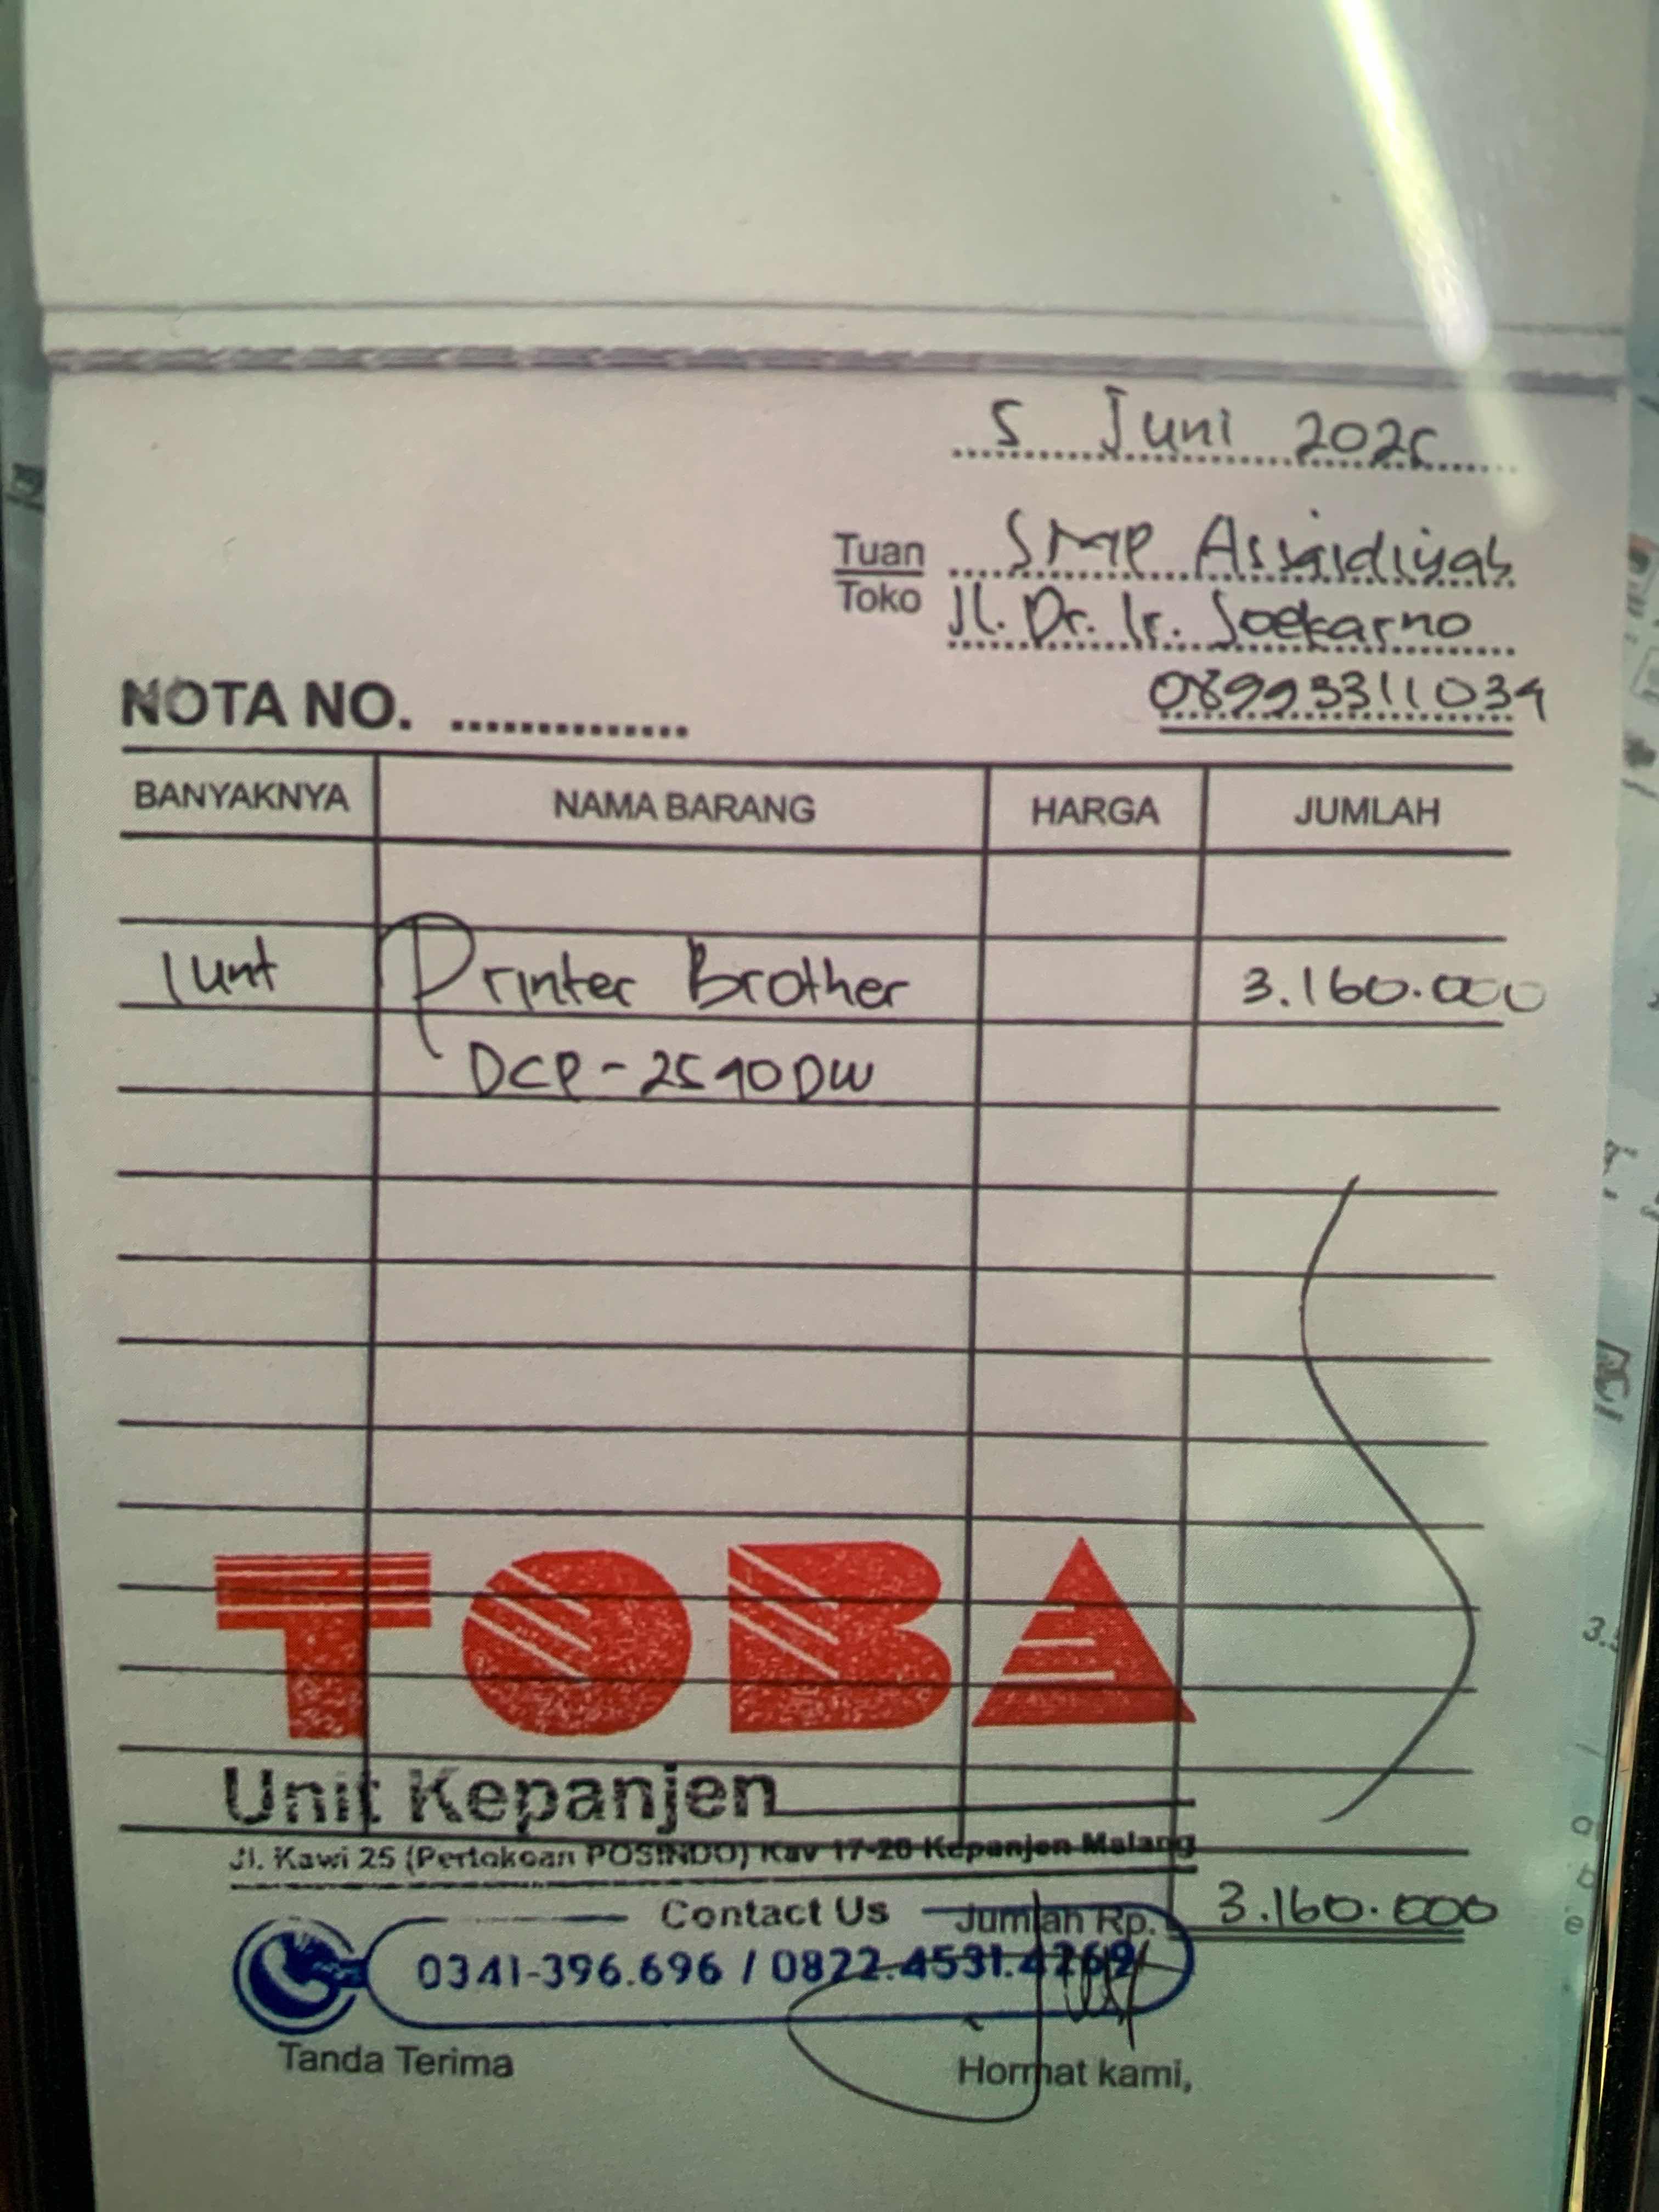 5 Juni 2025
Tuan
Toko
SMP Assaidiyah
Jl. Dr. Ir. Soekarno
NOTA NO.
08993311034
BANYAKNYA NAMA BARANG HARGA JUMLAH
1 unt Printer Brother 3.160.000
DCP-2540DW
TOBA
Unit Kepanjen
Jl. Kawi 25 (Pertokoan POSINDO) Kav 17-20 Kepanjen Malang
Contact Us
Jumlah Rp. 3.160.000
0341-396.696 / 0822.4531.4269
Tanda Terima Hormat kami,